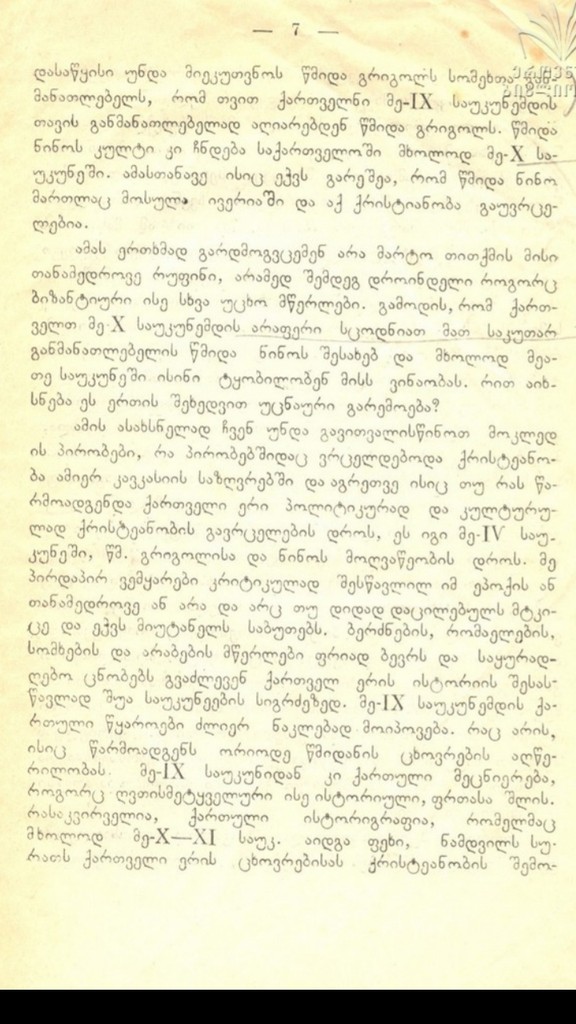 — 7 —
დასაწყისი უნდა მიეკუთვნოს წმიდა გრიგოლს სომეხთა გან-
მანათლებელს, რომ თვით ქართველნი მე-IX საუკუნემდის
თავის განმანათლებელად აღიარებდენ წმიდა გრიგოლს. წმიდა
ნინოს კულტი კი ჩნდება საქართველოში მხოლოდ მე-X სა-
უკუნეში. ამასთანავე ისიც ეჭვს გარეშეა, რომ წმიდა ნინო
მართლაც მოსულა ივერიაში და აქ ქრისტიანობა გაუვრცე-
ლებია.
ამას ერთხმად გარდმოგვცემენ არა მარტო თითქმის მისი
თანამედროვე რუფინი, არამედ შემდეგ დროინდელი როგორც
ბიზანტიური ისე სხვა უცხო მწერლები. გამოდის, რომ ქართ-
ველთ მე-X საუკუნემდის არაფერი სცოდნიათ მათ საკუთარ
განმანათლებელის წმიდა ნინოს შესახებ და მხოლოდ მეა-
თე საუკუნეში ისინი ტყობილობენ მისს ვინაობას. რით აიხ-
სნება ეს ერთის შეხედვით უცნაური გარემოება?
ამის ასახსნელად ჩვენ უნდა გავითვალისწინოთ მოკლედ
ის პირობები, რა პირობებშიდაც ვრცელდებოდა ქრისტეანო-
ბა ამიერ კავკასიის საზღვრებში და აგრეთვე ისიც თუ რას წა-
რმოადგენდა ქართველი ერი პოლიტიკურად და კულტურუ-
ლად ქრისტეანობის გავრცელების დროს, ეს იგი მე-IV საუ-
კუნეში, წმ. გრიგოლისა და ნინოს მოღვაწეობის დროს. მე
პირდაპირ ვემყარები კრიტიკულად შესწავლილ იმ ეპოქის ან
თანამედროვე ან არა და არც თუ დიდად დაცილებულს მტკი-
ცე და ეჭვს მიუტანელს საბუთებს. ბერძნების, რომაელების,
სომხების და არაბების მწერლები ფრიად ბევრს და საყურად-
ღებო ცნობებს გვაძლევენ ქართველ ერის ისტორიის შესას-
წავლად შუა საუკუნეების სიგრძეზედ. მე-IX საუკუნემდის ქა-
რთული წყაროები ძლიერ ნაკლებად მოიპოვება. რაც არის,
ისიც წარმოადგენს ორიოდე წმიდანის ცხოვრების აღწე-
რილობას. მე-IX საუკუნიდან კი ქართული მეცნიერება,
როგორც ღვთისმეტყველური ისე ისტორიული, ფრთასა შლის.
რასაკვირველია, ქართული ისტორიგრაფია, რომელმაც
მხოლოდ მე-X—XI საუკ. აიდგა ფეხი, ნამდვილს სუ-
რათს ქართველი ერის ცხოვრებისას ქრისტეანობის შემო-